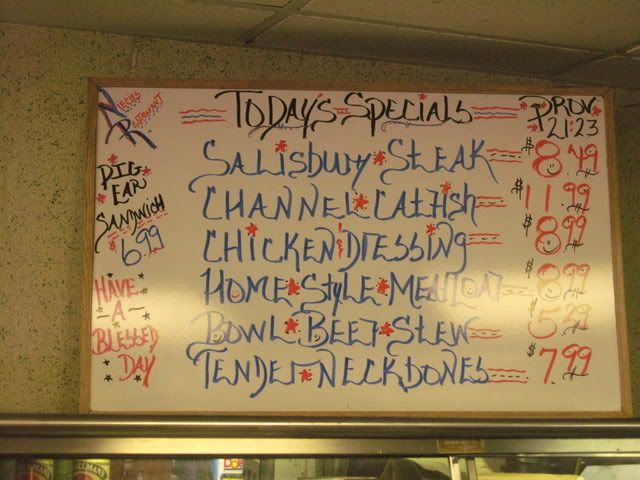 TODAY'S SPECIALS
PROV.
21:23
SALISBURY STEAK $8.49
CHANNEL CATFISH $11.99
CHICKEN & DRESSING $8.99
HOME STYLE MEATLOAF 8.99
BOWL BEEF STEW 5.29
TENDER NECKBONES $7.99
RESTAURANT
PIG
EAR
SANDWICH
$6.99
HAVE
A
BLESSED
DAY
Dole